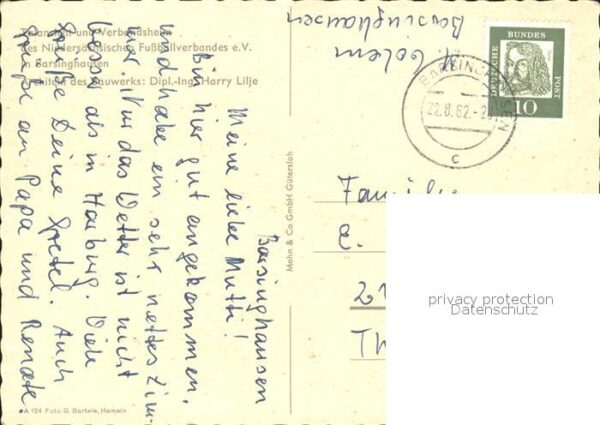 Talansicht und Verbandsheim
des Niedersächsischen Fußballverbandes e.V.
in Barsinghausen
Architekt des Bauwerks: Dipl.-Ing. Harry Lilje
Barsinghausen
Meine liebe Mutti!
Bin hier gut angekommen
und habe ein sehr nettes Zim-
mer. Nur das Wetter ist nicht
besser als in Harburg. Viele
Grüße Deine Gretel. Auch
Grüße an Papa und Renate
A 124 Foto G. Bartels, Hameln
Mohn & Co GmbH Gütersloh
Barsinghausen
DEUTSCHE BUNDESPOST
10
BARSINGHAUSEN
22.8.62.-2
c
Familie
E.
21
Th
privacy protection
Datenschutz